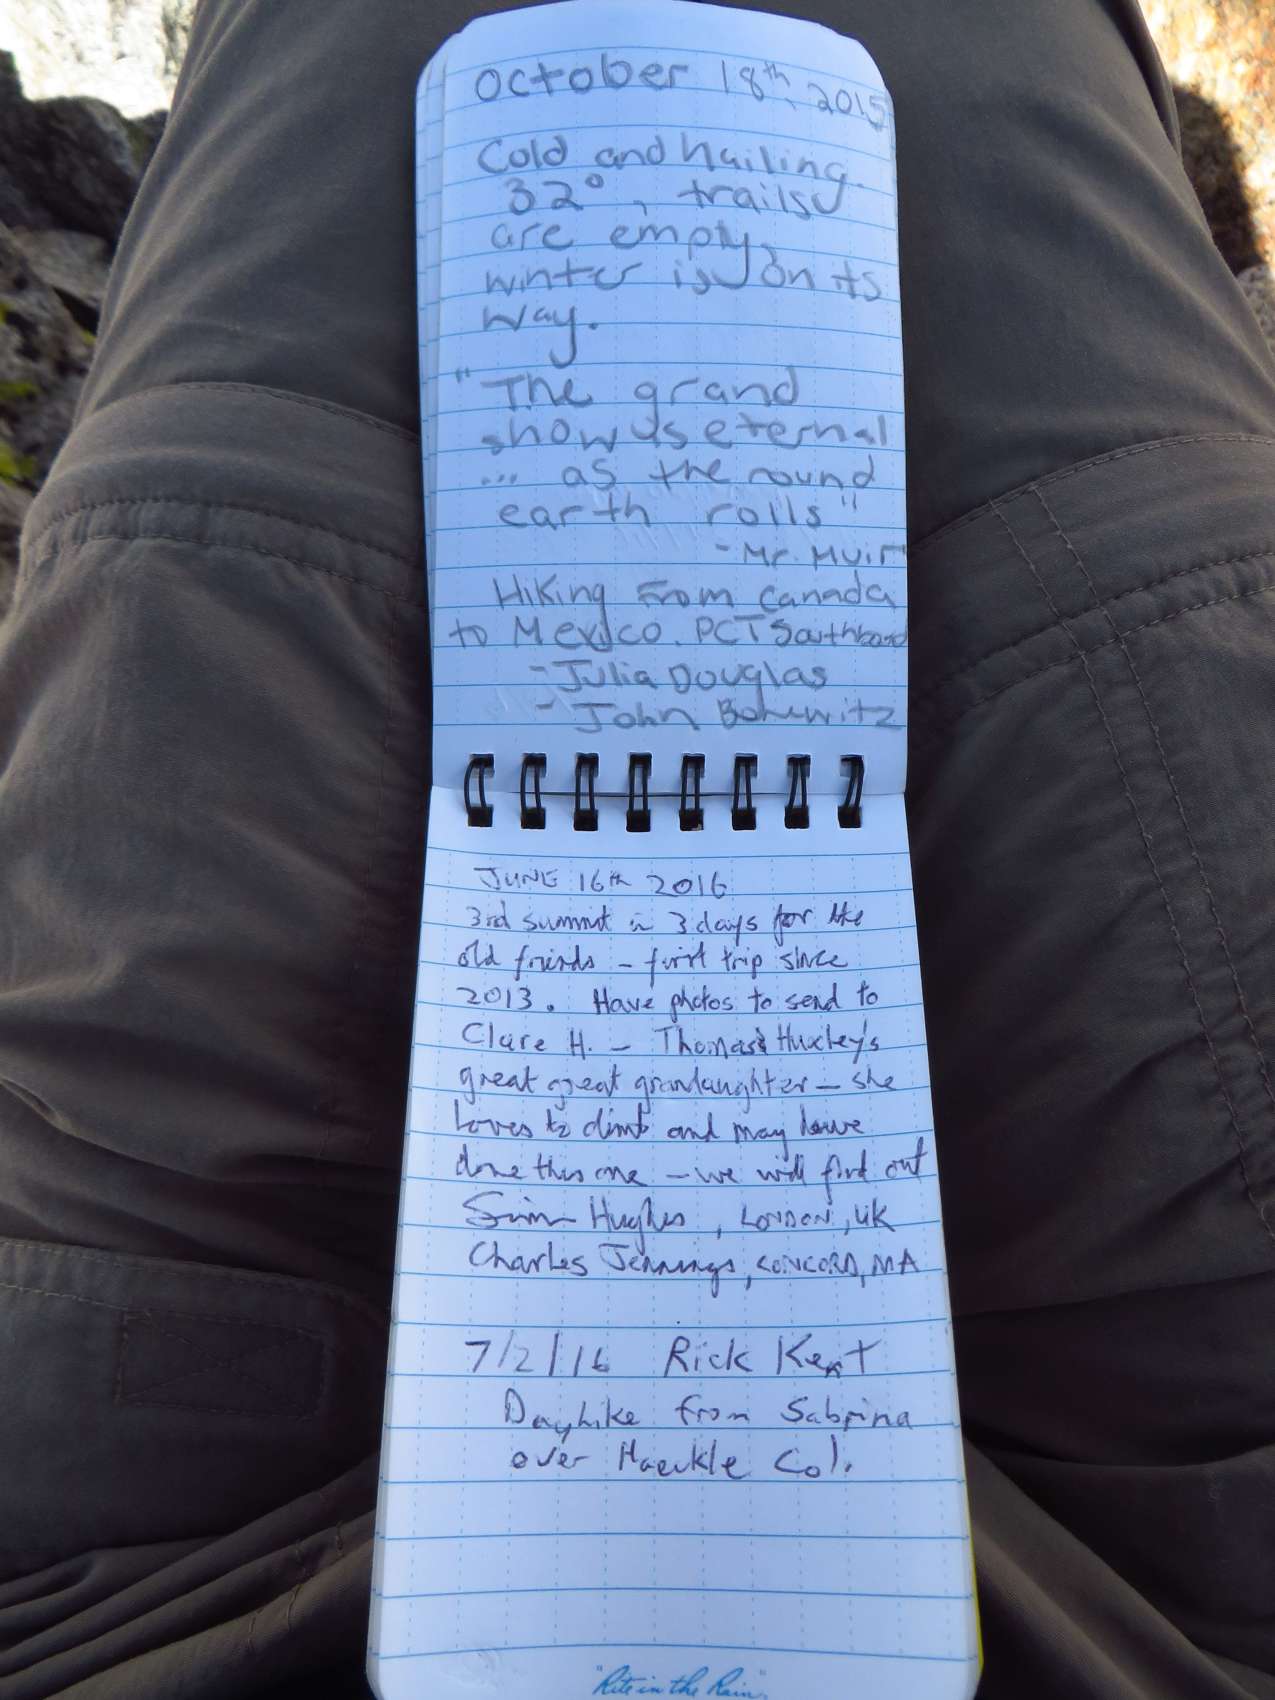 October 18th, 2015
Cold and hailing.
32°, trails
are empty,
winter is on its
way.
"The grand
show is eternal
... as the round
earth rolls"
- Mr. Muir
Hiking from Canada
to Mexico. PCT Southbound
- Julia Douglas
- John
JUNE 16th 2016
3rd summit in 3 days for the
old friends - first trip since
2013. Have photos to send to
Clare H. - Thomas Huxley's
great great grandaughter - she
loves to climb and may have
done this one - we will find out
Hughes, LONDON, UK
Charles Jennings, CONCORD, MA
7/2/16 Rick Kent
Dayhike from Sabrina
over Haeckle Col.
"Rite in the Rain"